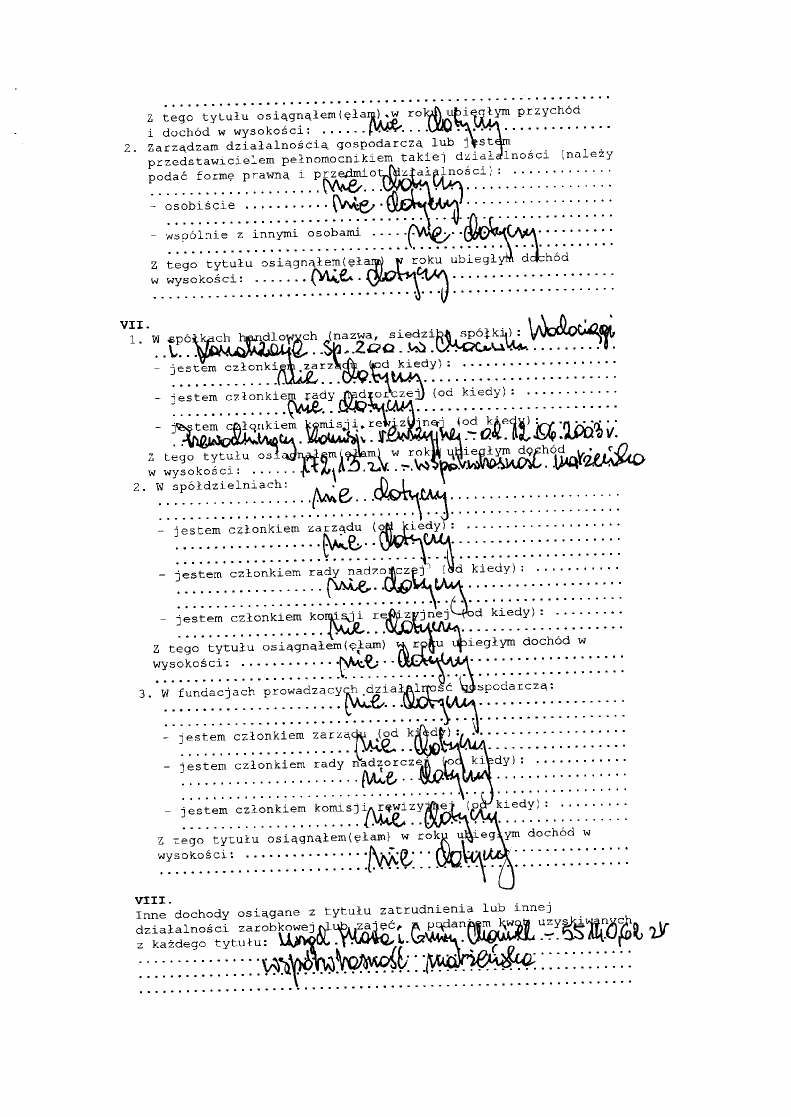 Z tego tytułu osiągnąłem(ęłam) w roku ubiegłym przychód
i dochód w wysokości: ...... nie dotyczy
2. Zarządzam działalnością gospodarczą lub jestem
przedstawicielem pełnomocnikiem takiej działalności (należy
podać formę prawną i przedmiot działalności): .............
nie dotyczy
- osobiście ........... nie dotyczy
- wspólnie z innymi osobami ..... nie dotyczy
Z tego tytułu osiągnąłem(ęłam) w roku ubiegłym dochód
w wysokości: ....... nie dotyczy
VII.
1. W spółkach handlowych (nazwa, siedziba spółki): Wodociągi
i Kanalizacje Sp. z o.o. w
- jestem członkiem zarządu (od kiedy): ....................
nie dotyczy
- jestem członkiem rady nadzorczej (od kiedy): ............
nie dotyczy
- jestem członkiem komisji rewizyjnej (od kiedy):
Przewodniczący Komisji rewizyjnej - od 12.06.2003 r.
Z tego tytułu osiągnąłem(ęłam) w roku ubiegłym dochód
w wysokości: ...... 172,13 zł. - współwłasność małżeńska
2. W spółdzielniach:
nie dotyczy
- jestem członkiem zarządu (od kiedy): ....................
nie dotyczy
- jestem członkiem rady nadzorczej (od kiedy): ...........
nie dotyczy
- jestem członkiem komisji rewizyjnej (od kiedy): .........
nie dotyczy
Z tego tytułu osiągnąłem(ęłam) w roku ubiegłym dochód w
wysokości: ............ nie dotyczy
3. W fundacjach prowadzących działalność gospodarczą:
nie dotyczy
- jestem członkiem zarządu (od kiedy):
nie dotyczy
- jestem członkiem rady nadzorczej (od kiedy): ............
nie dotyczy
- jestem członkiem komisji rewizyjnej (od kiedy): .........
nie dotyczy
Z tego tytułu osiągnąłem(ęłam) w roku ubiegłym dochód w
wysokości: ................ nie dotyczy
VIII.
Inne dochody osiągane z tytułu zatrudnienia lub innej
działalności zarobkowej lub zajęć, z podaniem kwot uzyskiwanych
z każdego tytułu: Urząd Miasta i Gminy - 55 140,62 zł
współwłasność małżeńska